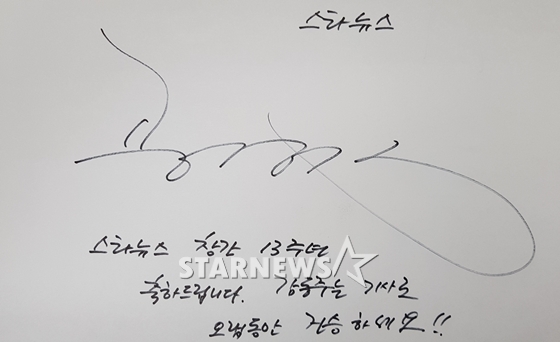 스타뉴스
스타뉴스 창간 13주년
STARNEWS
축하드립니다. 감동주는 기사로
오랩동안 건승하세요!!